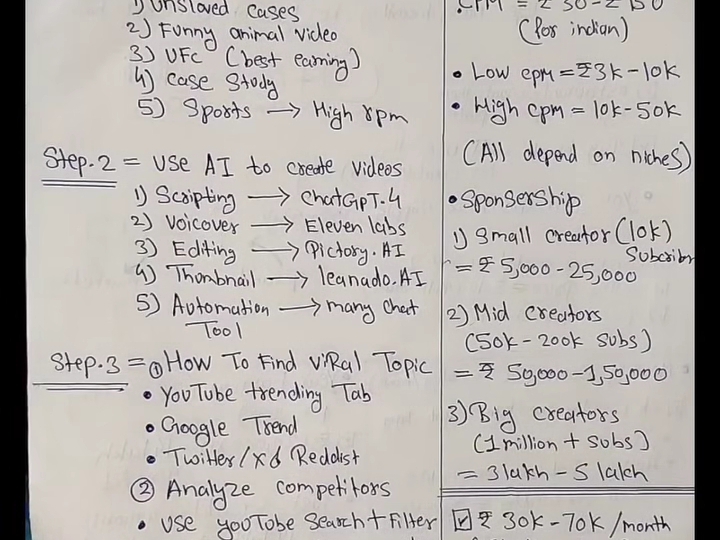 1) Unsloved cases
2) Funny animal video
3) UFC (best earning)
4) Case Study
5) Sports → High rpm
Step.2 = Use AI to create videos
1) Scripting → ChatGPT-4
2) Voicover → Eleven labs
3) Editing → Pictory.AI
4) Thumbnail → leanado.AI
5) Automation → many chat
Tool
Step.3 = ① How To Find viRal Topic
• YouTube trending Tab
• Google Trend
• Twitter/X & Reddist
② Analyze competitors
• Use youTube Search + Filter
(for indian)
• Low cpm = ₹3k - 10k
• High cpm = 10k - 50k
(All depend on niches)
• SponserShip
1) Small creator (10k)
Subcriber
= ₹ 5,000 - 25,000
2) Mid creators
(50k - 200k subs)
= ₹ 50,000 - 1,50,000
3) Big creators
(1 million + subs)
= 3 lakh - 5 lakh
☑ ₹ 30k - 70k /month